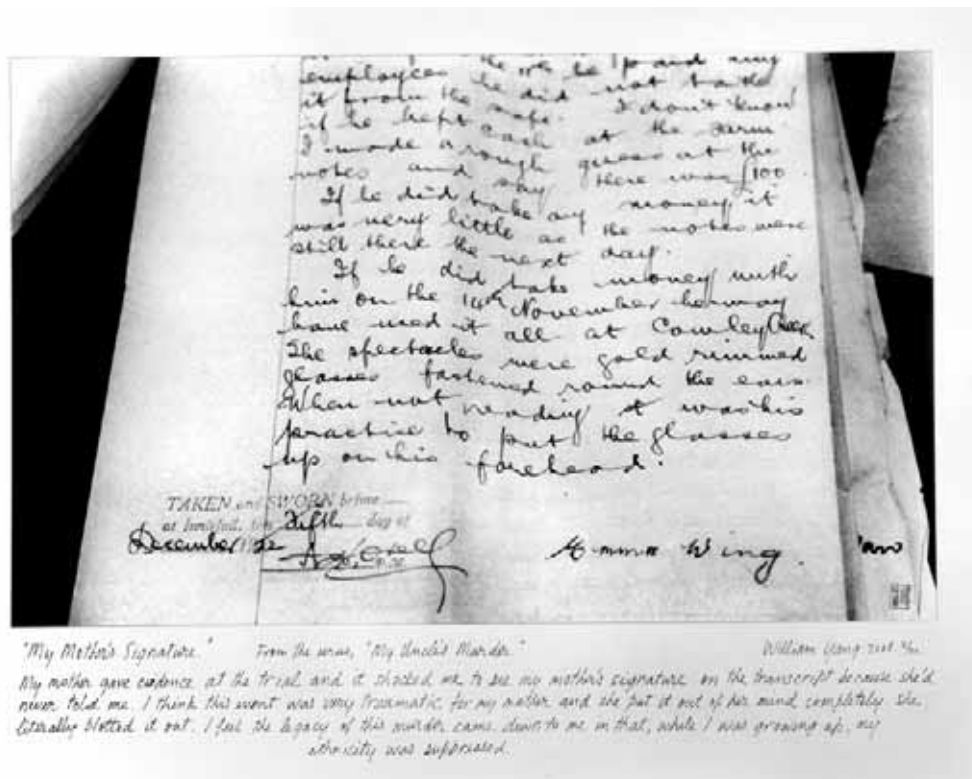 employees he did not take
it from the safe. I don't know
if he kept cash at the farm.
I made a rough guess at the
notes and say there was £100.
If he did take any money it
was very little as the notes were
still there the next day.
If he did take money with
him on the 14th November he may
have used it all at Cowley Creek.
The spectacles were gold rimmed
glasses fastened round the ears.
When not reading it was his
practice to put the glasses
up on his forehead.
TAKEN and SWORN before
at Innisfail, this Fifth day of
December 1922
Emma Wing
"My Mother's Signature." From the series, "My Uncle's Murder." William Yang
My mother gave evidence at the trial and it shocked me to see my mother's signature on the transcript because she'd
never told me. I think this event was very traumatic for my mother and she put it out of her mind completely. She
literally blotted it out. I feel the legacy of this murder came down to me in that, while I was growing up, my
ethnicity was suppressed.